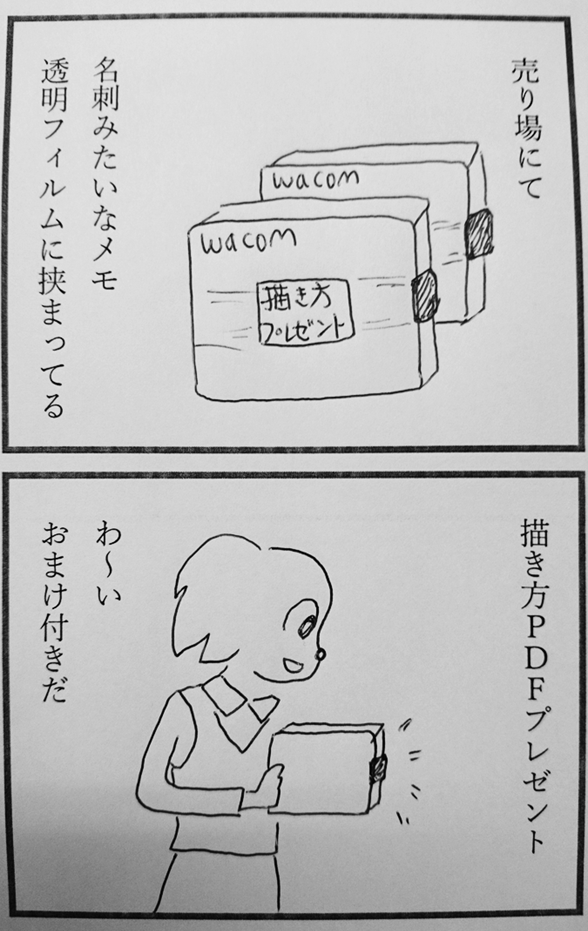 売り場にて
wacom
wacom
描き方
プレゼント
名刺みたいなメモ
透明フィルムに挟まってる
描き方PDFプレゼント
わ〜い
おまけ付きだ